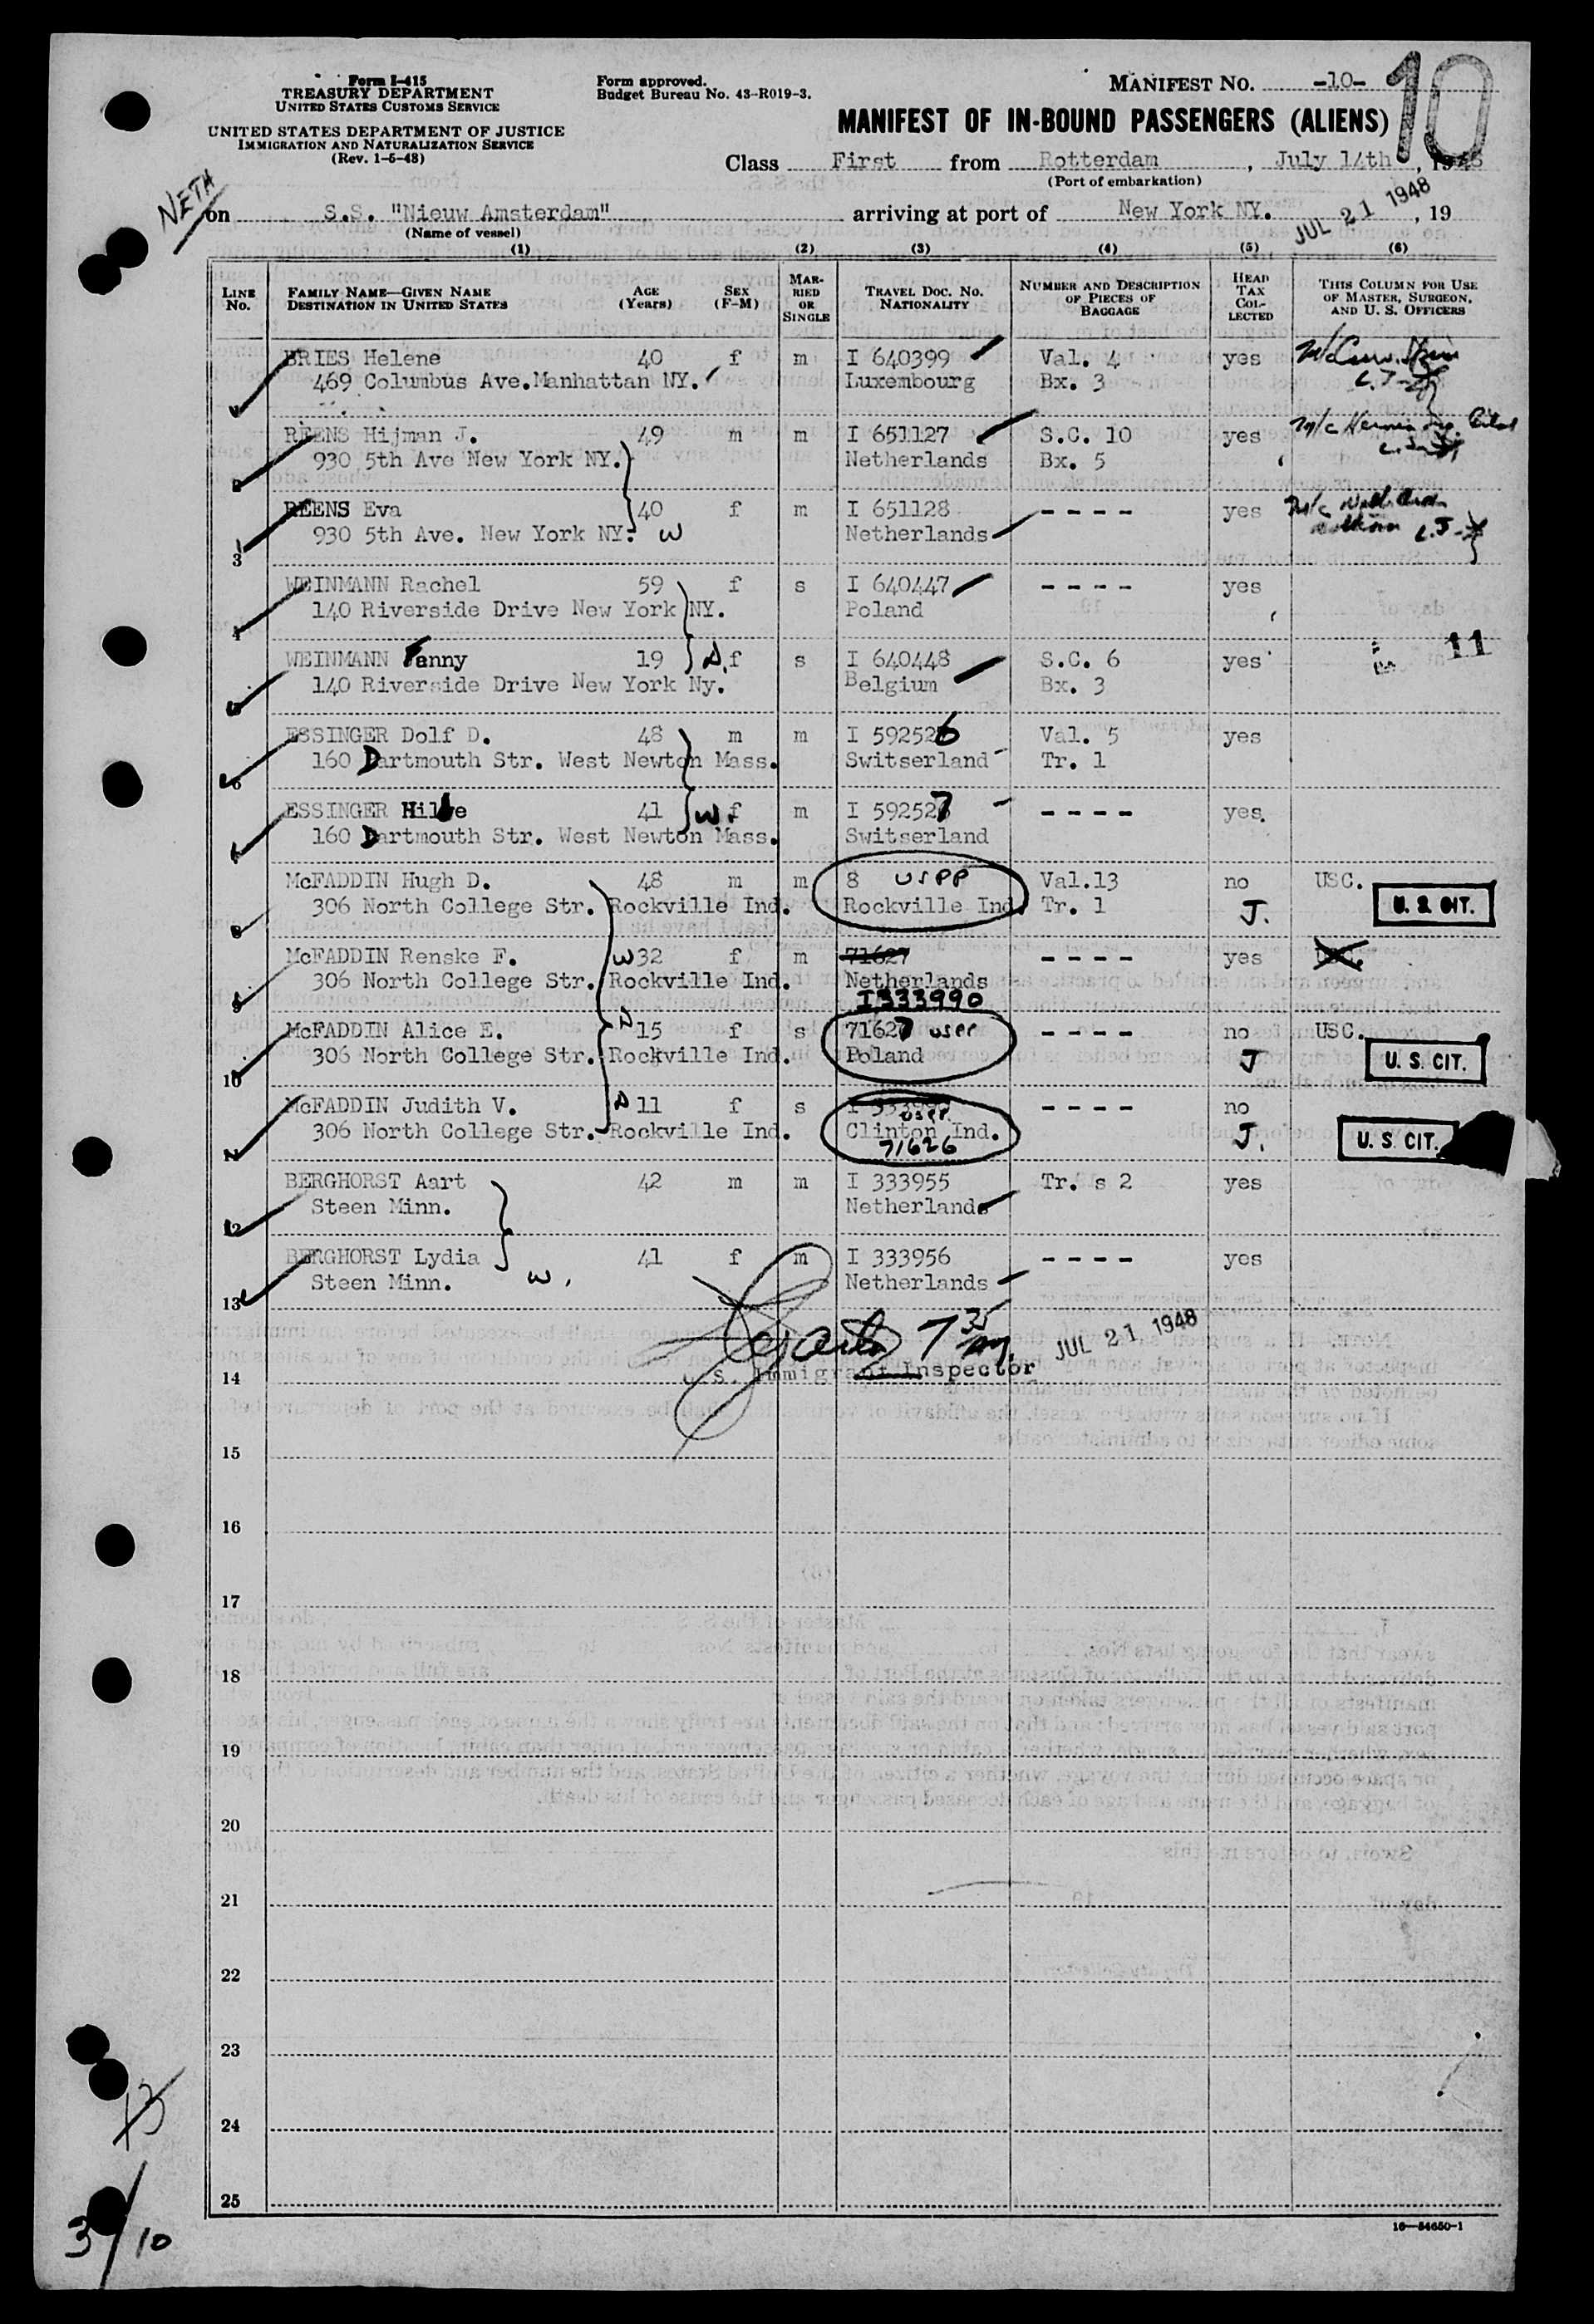 Form I-415
TREASURY DEPARTMENT
UNITED STATES CUSTOMS SERVICE
UNITED STATES DEPARTMENT OF JUSTICE
IMMIGRATION AND NATURALIZATION SERVICE
(Rev. 1-6-48)
Form approved.
Budget Bureau No. 43-R019-3.
MANIFEST NO. -10-
10
MANIFEST OF IN-BOUND PASSENGERS (ALIENS)
Class First from Rotterdam, July 14th, 1948
(Port of embarkation)
NETH
on S.S. "Nieuw Amsterdam" arriving at port of New York NY. JUL 21 1948, 19
(Name of vessel)
(1) (2) (3) (4) (5) (6)
LINE No. FAMILY NAME—GIVEN NAME DESTINATION IN UNITED STATES AGE (Years) SEX (F-M) MARRIED OR SINGLE TRAVEL DOC. NO. NATIONALITY NUMBER AND DESCRIPTION OF PIECES OF BAGGAGE HEAD TAX COLLECTED THIS COLUMN FOR USE OF MASTER, SURGEON, AND U. S. OFFICERS
BRIES Helene 40 f m I 640399 Val. 4 yes
469 Columbus Ave.Manhattan NY. Luxembourg Bx. 3
REENS Hijman J. 49 m m I 651127 S.C. 10 yes
930 5th Ave New York NY. Netherlands Bx. 5
2
REENS Eva 40 f m I 651128 - - - - yes
930 5th Ave. New York NY. W Netherlands
3
WEINMANN Rachel 59 f s I 640447 - - - - yes
140 Riverside Drive New York NY. Poland
4
WEINMANN Fanny 19 D. f s I 640448 S.C. 6 yes 11
140 Riverside Drive New York Ny. Belgium Bx. 3
ESSINGER Dolf D. 48 m m I 592526 Val. 5 yes
160 Dartmouth Str. West Newton Mass. Switserland Tr. 1
6
ESSINGER Hilde 41 W. f m I 592527 - - - - yes.
160 Dartmouth Str. West Newton Mass. Switserland
McFADDIN Hugh D. 48 m m 8 USPP Val.13 no USC.
306 North College Str. Rockville Ind. Rockville Ind. Tr. 1 J. U. S. CIT.
8
McFADDIN Renske F. W 32 f m 71627 - - - - yes
306 North College Str. Rockville Ind. Netherlands
9 I333990
McFADDIN Alice E. D 15 f s 71627 USPP - - - - no USC.
306 North College Str. Rockville Ind. Poland J U. S. CIT.
10
McFADDIN Judith V. D 11 f s USPP - - - - no
306 North College Str. Rockville Ind. Clinton Ind. J. U. S. CIT.
71626
BERGHORST Aart 42 m m I 333955 Tr. s 2 yes
Steen Minn. Netherlands
12
BERGHORST Lydia 41 f m I 333956 - - - - yes
Steen Minn. W. Netherlands
13
7 35 JUL 21 1948
U.S. Immigrant Inspector
14
15
16
17
18
19
20
21
22
23
24
25
13
3/10
16—54650-1